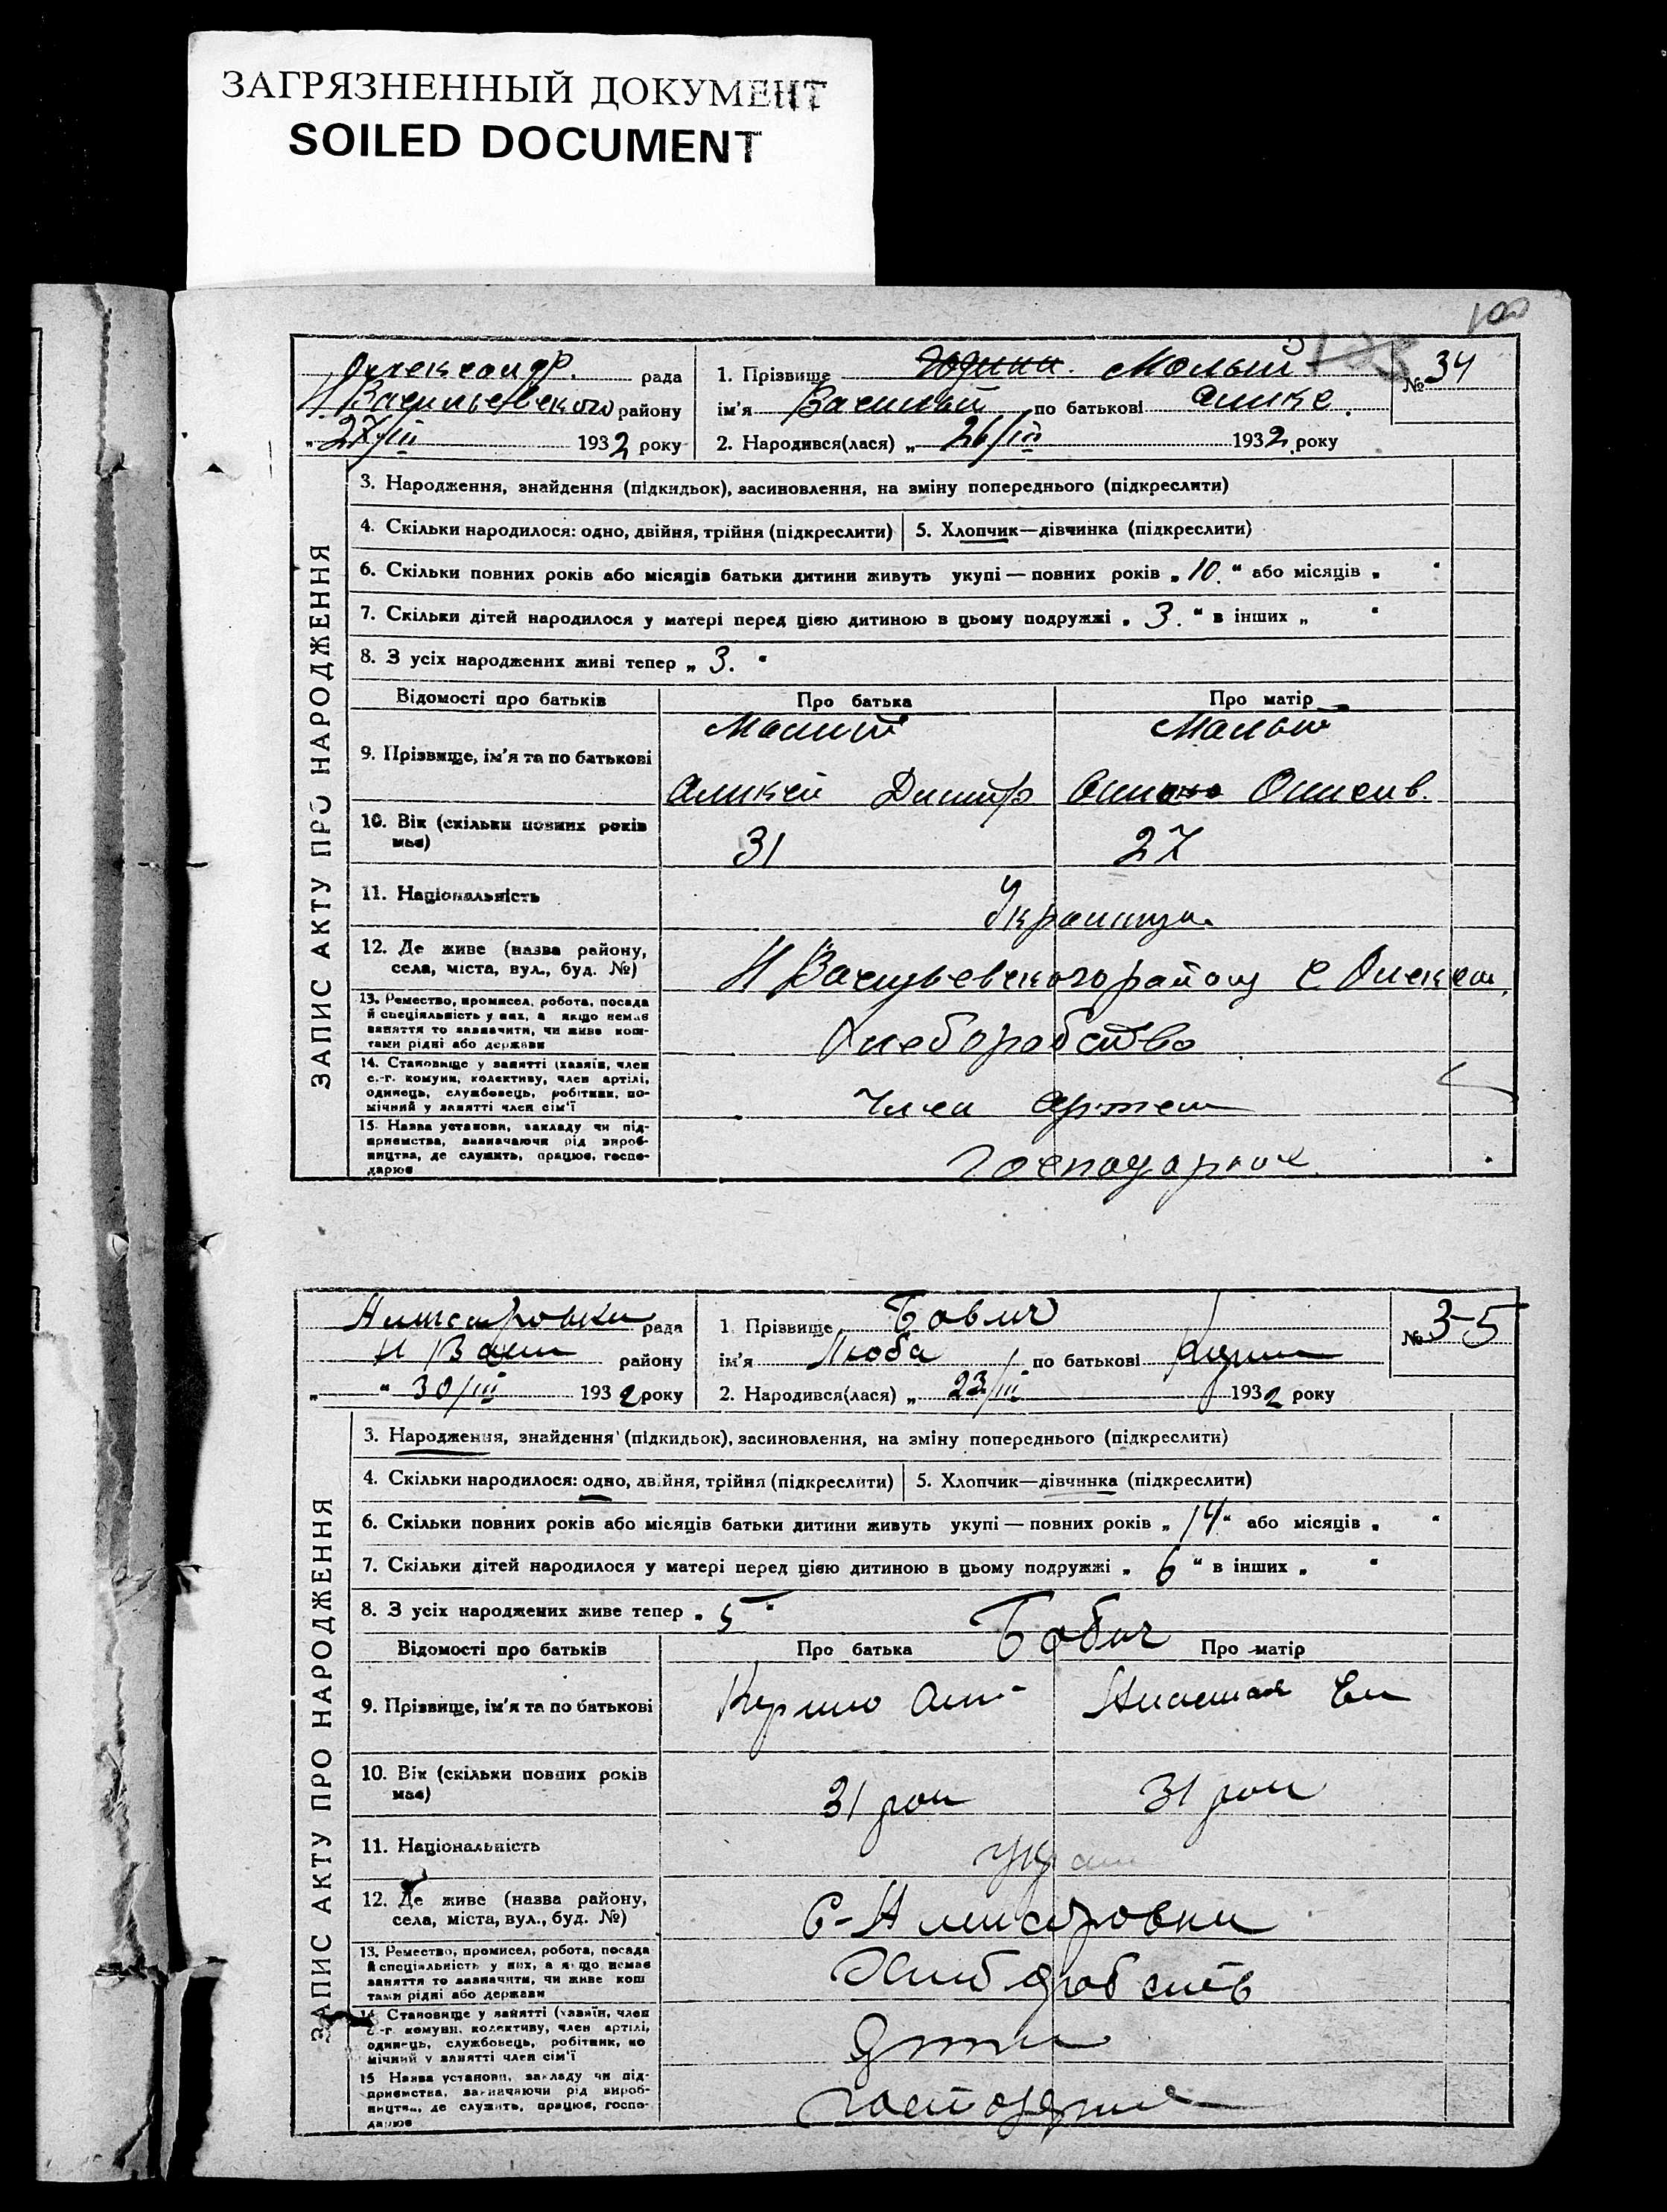 ЗАГРЯЗНЕННЫЙ ДОКУМЕНТ
SOILED DOCUMENT
100
Олександр. рада
Н Васильевского району
„ 27/III 1932 року
1. Прізвище Малый
ім'я Василый по батькові
2. Народився(лася) „ 26/III 1932 року
№ 34
ЗАПИС АКТУ ПРО НАРОДЖЕННЯ
3. Народження, знайдення (підкидьок), засиновлення, на зміну попереднього (підкреслити)
4. Скільки народилося: одно, двійня, трійня (підкреслити) 5. Хлопчик—дівчинка (підкреслити)
6. Скільки повних років або місяців батьки дитини живуть укупі — повних років „ 10. “ або місяців „ “
7. Скільки дітей народилося у матері перед цією дитиною в цьому подружжі „ 3. “ в інших „ “
8. З усіх народжених живі тепер „ 3. “
Відомості про батьків Про батька Про матір
Малий Малый
9. Прізвище, ім'я та по батькові
10. Вік (скільки повних років має) 31 27
11. Національність
12. Де живе (назва району, Н Васильевского району с Олексан.
села, міста, вул., буд. №)
13. Ремество, промисел, робота, посада
й спеціяльність у них, а якщо немає
заняття то зазначити, чи живе кош-
тами рідні або держави
Хлеборобство
14. Становище у занятті (хазяїн, член
с.-г. комуни, колективу, член артілі,
одинець, службовець, робітник, по-
мічний у занятті член сім'ї
Член артели
15. Назва установи, закладу чи під-
приємства, визначаючи рід вироб-
ництва, де служить, працює, госпо-
дарює
рада
району
„ “ 30/III 1932 року
1. Прізвище Бабич
ім'я Люба по батькові
2. Народився(лася) „ 23/III 1932 року
№ 35
ЗАПИС АКТУ ПРО НАРОДЖЕННЯ
3. Народження, знайдення (підкидьок), засиновлення, на зміну попереднього (підкреслити)
4. Скільки народилося: одно, двійня, трійня (підкреслити) 5. Хлопчик—дівчинка (підкреслити)
6. Скільки повних років або місяців батьки дитини живуть укупі — повних років „ 14 “ або місяців „ “
7. Скільки дітей народилося у матері перед цією дитиною в цьому подружжі „ 6 “ в інших „ “
8. З усіх народжених живе тепер „ 5 “
Бабич
Відомості про батьків Про батька Про матір
9. Прізвище, ім'я та по батькові
10. Вік (скільки повних років має) 31 31
11. Національність
12. Де живе (назва району,
села, міста, вул., буд. №)
13. Ремество, промисел, робота, посада
й спеціяльність у них, а якщо немає
заняття то зазначити, чи живе кош
тами рідні або держави
14. Становище у занятті (хазяїн, член
с.-г. комуни, колективу, член артілі,
одинець, службовець, робітник, по
мічний у занятті член сім'ї
15 Назва установи, закладу чи під-
приємства, зазначаючи рід вироб-
ництва, де служить, працює, госпо-
дарює